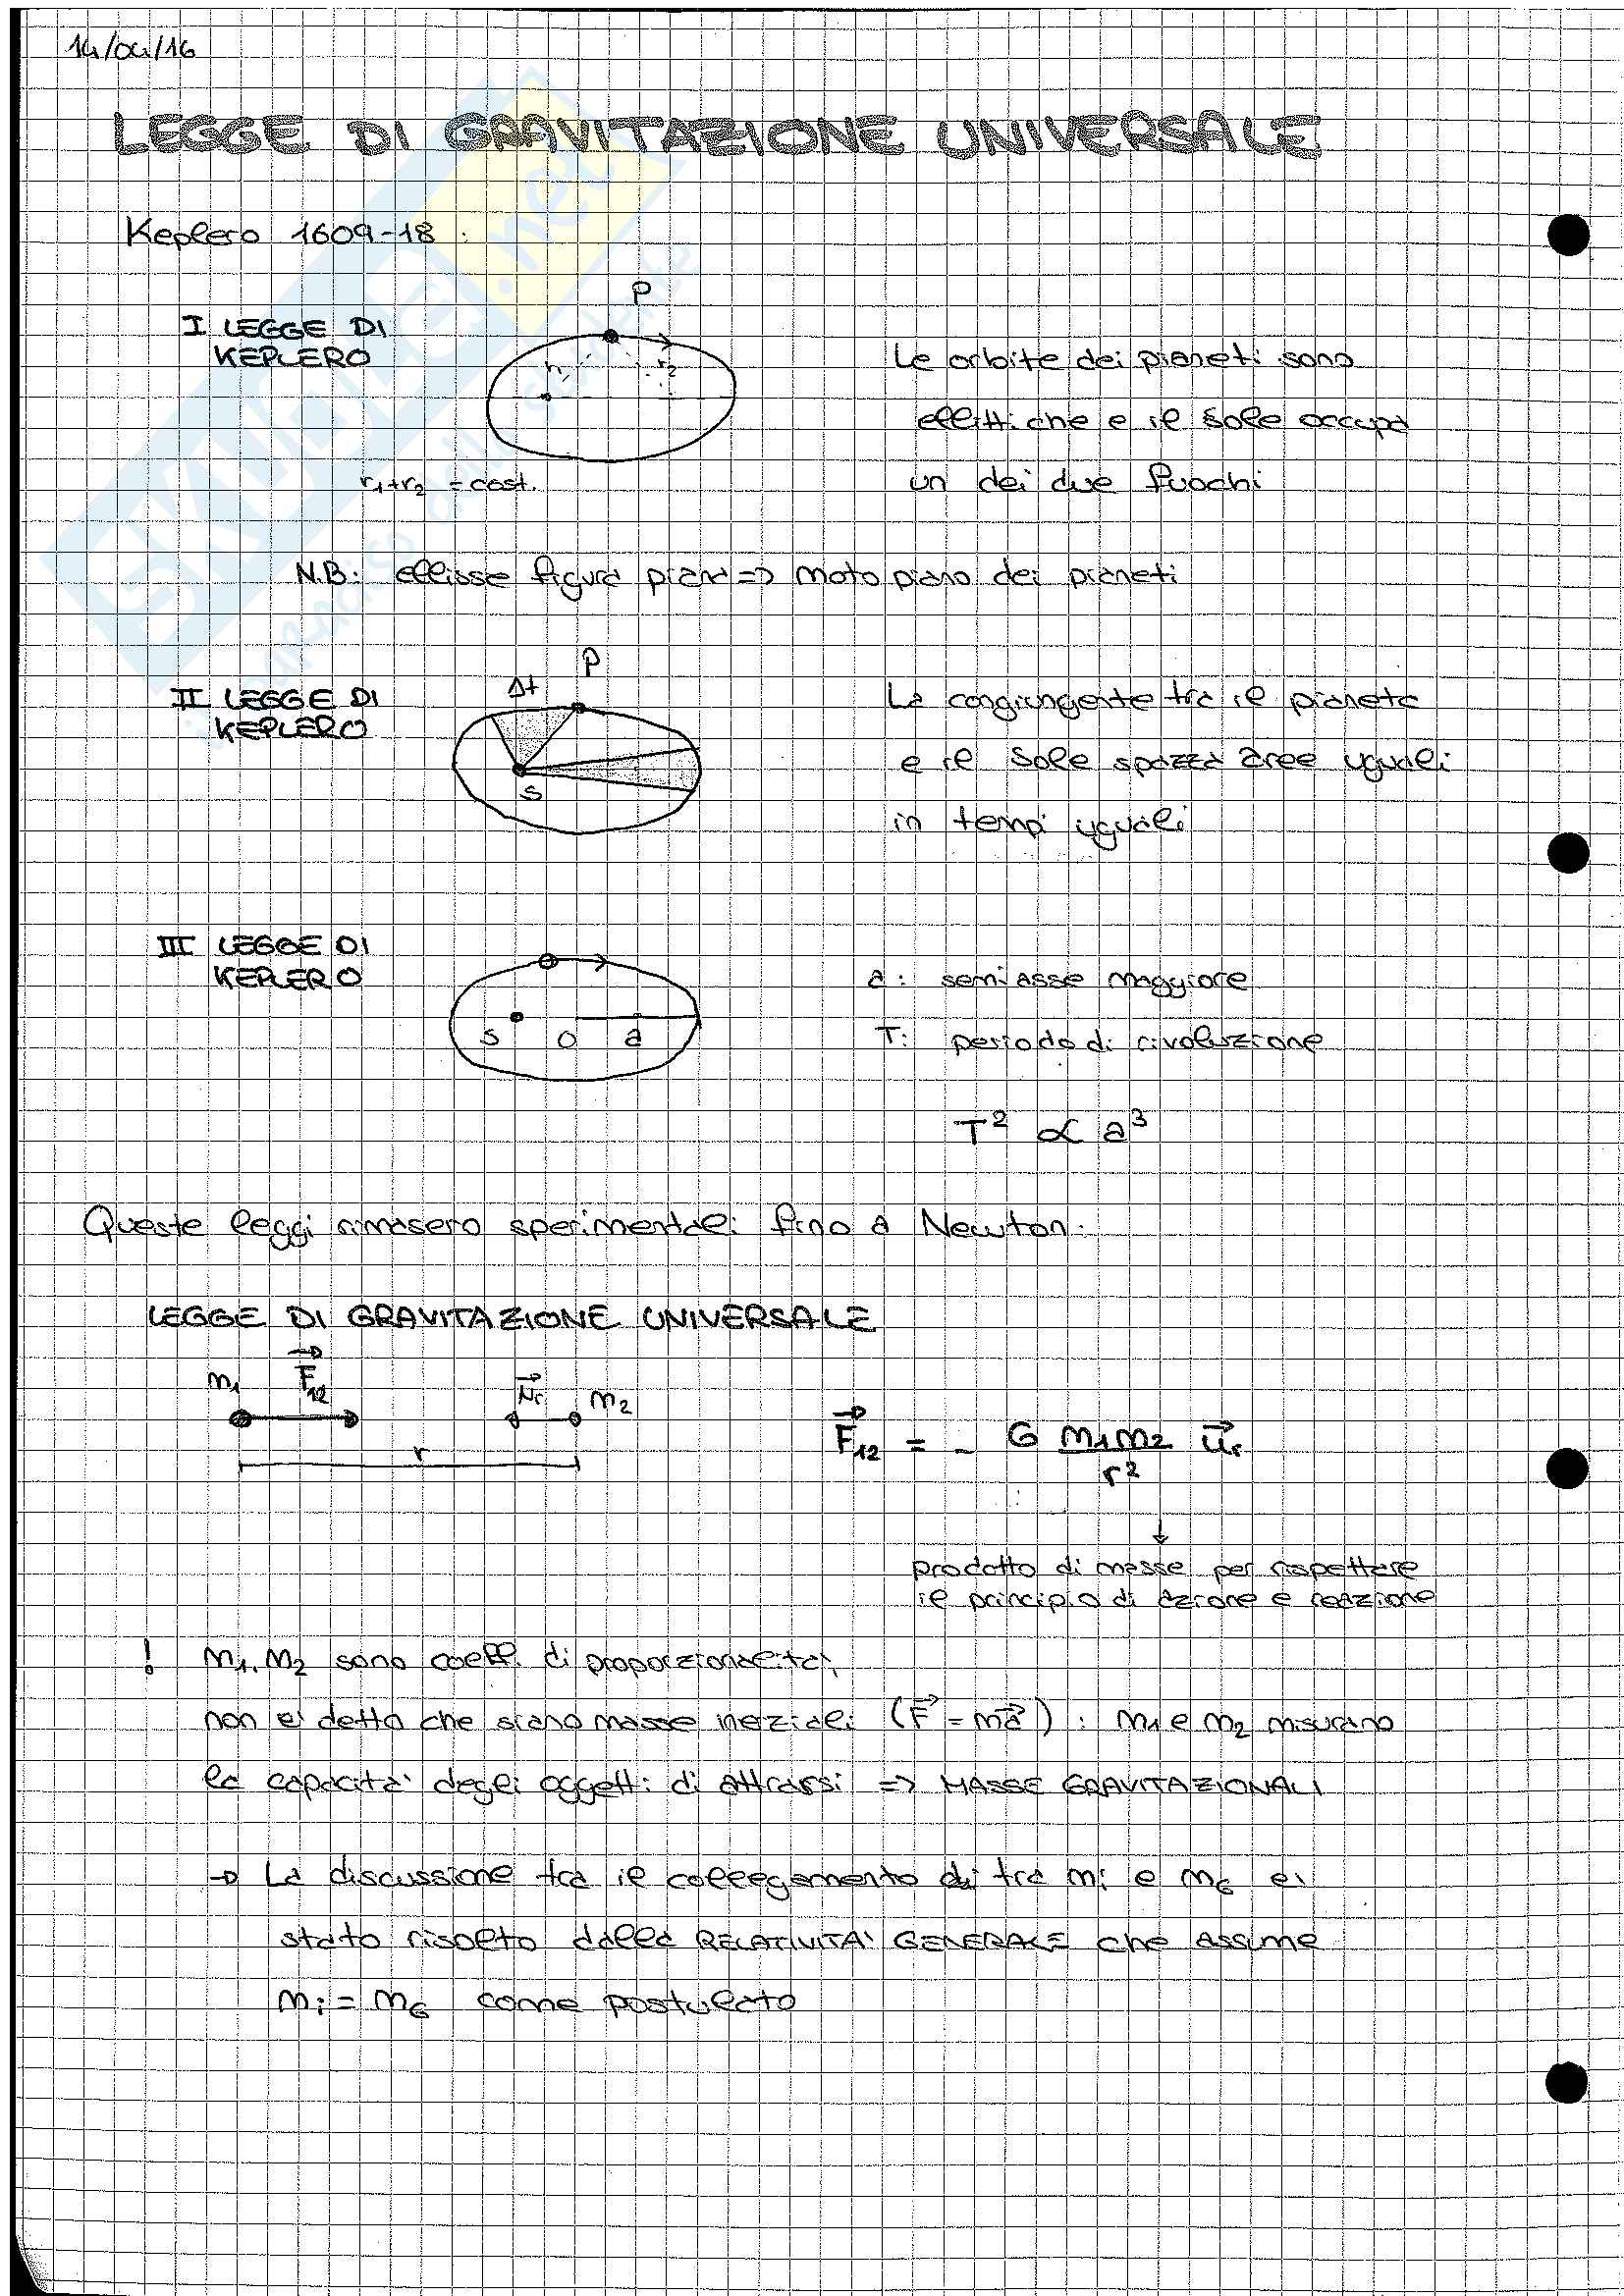 14/04/16
LEGGE DI GRAVITAZIONE UNIVERSALE
Keplero 1609-18:
P
I LEGGE DI
KEPLERO
r₁ r₂
Le orbite dei pianeti sono
ellittiche e il sole occupa
r₁+r₂ = cost.
un dei due fuochi
N.B: ellisse figura piana => moto piano dei pianeti
P
Δt
II LEGGE DI
KEPLERO
S
La congiungente tra il pianeta
e il Sole spazza aree uguali
in tempi uguali
III LEGGE DI
KEPLERO
S O a
a: semiasse maggiore
T: periodo di rivoluzione
T² ∝ a³
Queste leggi rimasero sperimentali fino a Newton:
LEGGE DI GRAVITAZIONE UNIVERSALE
m₁ F⃗₁₂ u⃗ᵣ m₂
r
F⃗₁₂ = - G m₁m₂/r² u⃗ᵣ
↓
prodotto di masse per rispettare
il principio di azione e reazione
! m₁, m₂ sono coeff. di proporzionalita',
non e' detto che siano masse inerziali (F⃗ = ma⃗) : m₁ e m₂ misurano
la capacita' degli oggetti di attrarsi => MASSE GRAVITAZIONALI
→ La discussione tra il collegamento di tra mi e mG e'
stato risolto dalla RELATIVITA' GENERALE che assume
mi = mG come postulato
SKUOLA.net